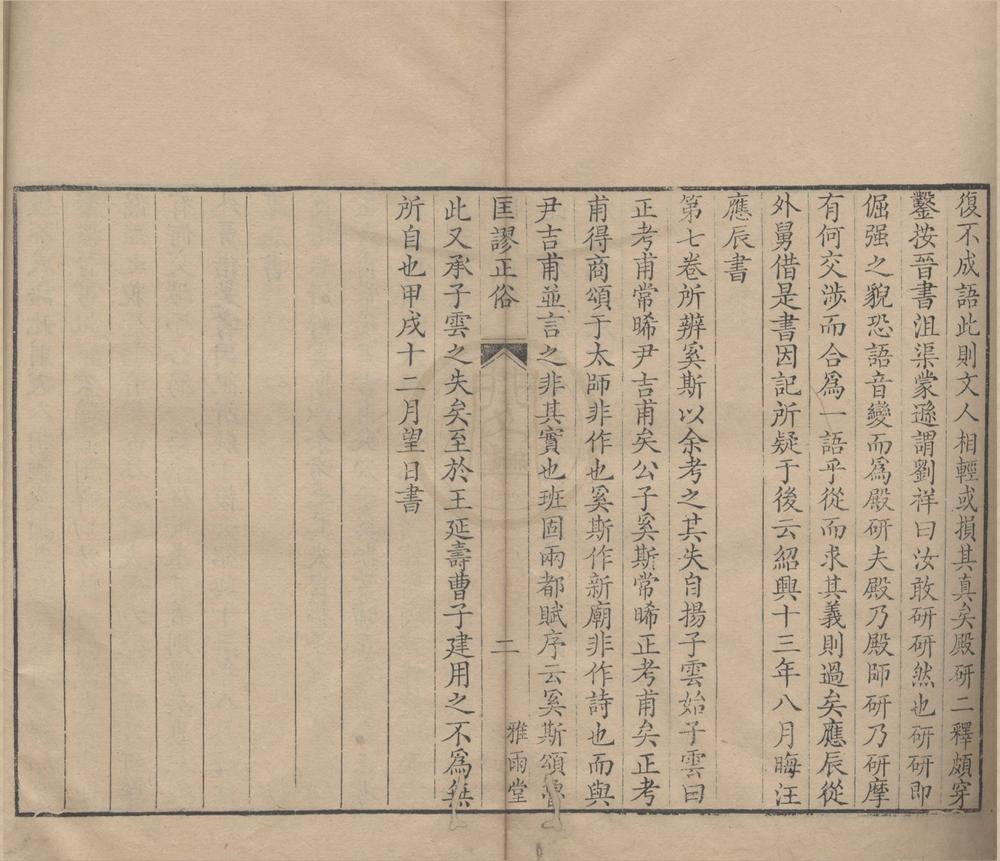 復不成語此則文人相輕或損其真矣殿研二釋頗穿
鑿按晉書沮渠蒙遜謂劉祥曰汝敢研研然也研研即
倔强之貌恐語音變而爲殿研夫殿乃殿師研乃研摩
有何交涉而合爲一語乎從而求其義則過矣應辰從
外舅借是書因記所疑于後云紹興十三年八月晦汪
應辰書
第七卷所辨奚斯以余考之其失自揚子雲始子雲曰
正考甫常睎尹吉甫矣公子奚斯常睎正考甫矣正考
甫得商頌于太師非作也奚斯作新廟非作詩也而與
尹吉甫並言之非其實也班固兩都賦序云奚斯頌魯
匡謬正俗 二 雅雨堂
此又承子雲之失矣至於王延壽曹子建用之不爲無
所自也甲戌十二月望日書